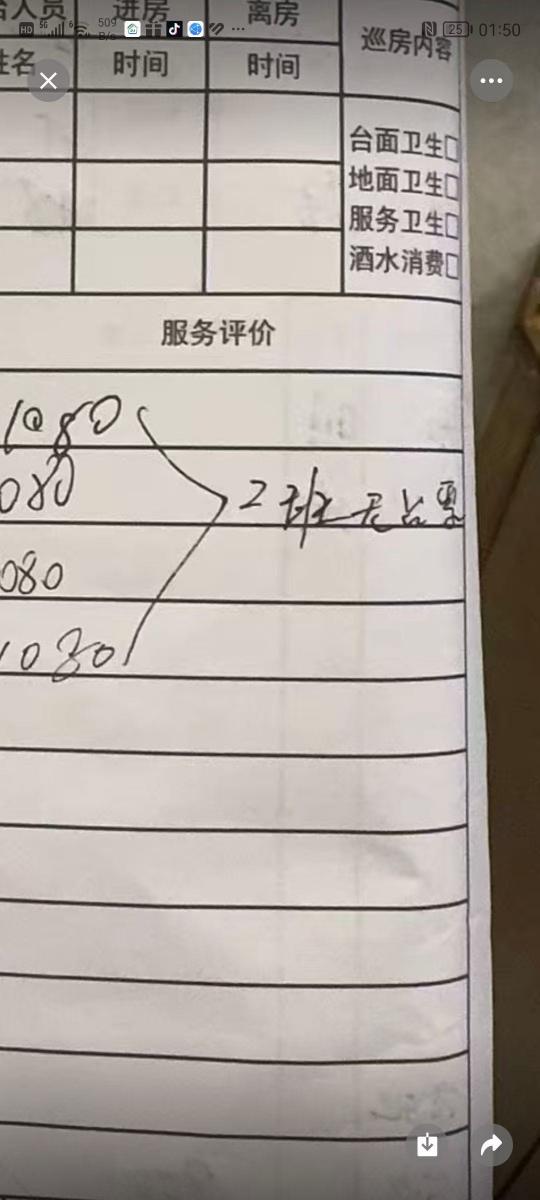 HD 5G 6 509 B/s ... 25 01:50
台人员 进房 离房 巡房内容
姓名 时间 时间
台面卫生□
地面卫生□
服务卫生□
酒水消费□
服务评价
1080
080
2班无
080
1080